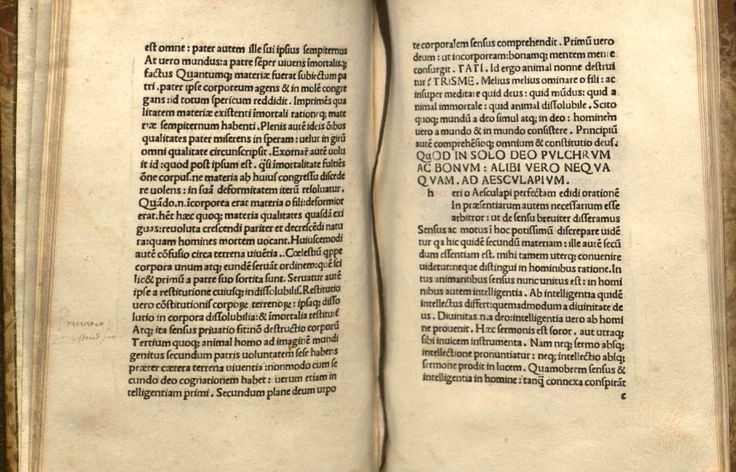 est omne : pater autem ille sui ipsius sempiternus
At uero mundus: a patre sēper uiuens īmortalisq;
factus Quantumq; materiæ fuerat subiectum pa
tri . pater ipse corporeum agens & in molē congre
gans: id totum spericum reddidit . Imprimēs qua
litatem materiæ existenti īmortali rationeq; mate
riæ sempiternum habenti . Plenis autē ideis ōibus
qualitates pater miserens in speram : uelut in girū
omni qualitate circunscripsit . Exornare autē uolu
it id : quod post ipsum est . qsi īmortalitate fultiēs
ōne corpus . ne materia ab huius congressu discede
re uolens : in suā deformitatem iterū resoluatur .
Quādo .n. īcorporea erat materia o fili : deformior
erat . hēt hæc quoq; materia qualitates quasdā exi
guas : reuoluta crescendi pariter et decrescēdi natu
ra: quam homines mortem uocant . Huiuscemodi
autē cōfusio circa terrena uiuētia . . Cœlestiū qppe
corpora unum atq; eundē seruāt ordinem: quē sci
lic& primū a patre suo sortita sunt . Seruatur autē
ipse a restitutione cuiusq; indissolubilis. Restitutio
uero cōstitutionis corpoꝝ terrenoꝝ : ipsaq; disso
lutio in corpora dissolubilia: & īmortalia restituit
Atq; ita sensus priuatio fit: nō destructio corporū
Tertium quoq; animal homo ad imaginē mundi
genitus secundum patris uoluntatem sese habens
præter cætera terrena uiuentia : nonmodo cum se
cundo deo cognationem habet : uerum etiam in
telligentiam primi . Secundum plane deum utpo
te corporalem sensus comprehendit . Primū uero
deum : ut incorporeum: bonamq; mentem mente
consurgit . TATI . Id ergo animal nonne destrui
tur ? TRISME. Melius melius ominare o fili : ac
insuper meditare quid deus : quid mūdus: quid a
nimal immortale : quid animal dissolubile . Scito
quoq; mundū a deo simul atq; in deo : hominem
uero a mundo & in mundo consistere . Principiū
autē comprehēsioq; omnium & constitutio deus .
QuOD IN SOLO DEO PVLCHRVM
AC BONVM : ALIBI VERO NEQVA
QVAM . AD AESCVLAPIVM .
h eri o Aesculapi perfectam edidi orationē
In præsentiarum autem necessarium esse
arbitror : ut de sensu breuiter disseramus
Sensus ac motus : hoc potissimū discrepare uidē
tur q̄ hic quidē secundū materiam : ille autē secū
dum essentiam est . mihi tamen uterq; conuenire
uidetur: neque distingui in hominibus ratione. In
tus animantibus sensus nunc unitus est : in homi
nibus autem intelligentia . Ab intelligentia quidē
intellectus differt: quemadmodum a diuinitate de
us . Diuinitas .n. a deo: intelligentia uero ab homi
ne prouenit . Hæc sermonis est soror . aut utraq;
sibi inuicem instrumenta . Nam neq; sermo absq;
intellectione pronuntiatur : neq; intellectio absq;
sermone prodit in lucem . Quamobrem sensus &
intelligentia in homine : tanq̄ connexa conspirāt
c